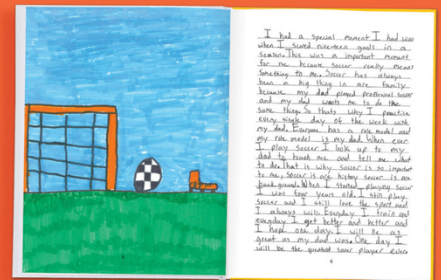 I had a special moment I had was
when I scored nineteen goals in a
season. This was a important moment
for me because soccer really means
something to me. Soccer has always
been a big thing in are family
because my dad played profesional soccer
and my dad wants me to do the
same thing. So thats why I practice
every single day of the week with
my dad. Everyone has a role model and
my role model is my dad. When ever
I play soccer I look up to my
dad to teach me and tell me what
to do. That is why soccer is so important
to me. Soccer is are history soccer is are
back grounds. When I started playing soccer
I was four years old. I still play
soccer and I still love the sport and
I always will. Everyday I train and
everyday I get better and better and
I hope one day I will be as
great as my dad was. One day I
will be the greatest soccer player ever.